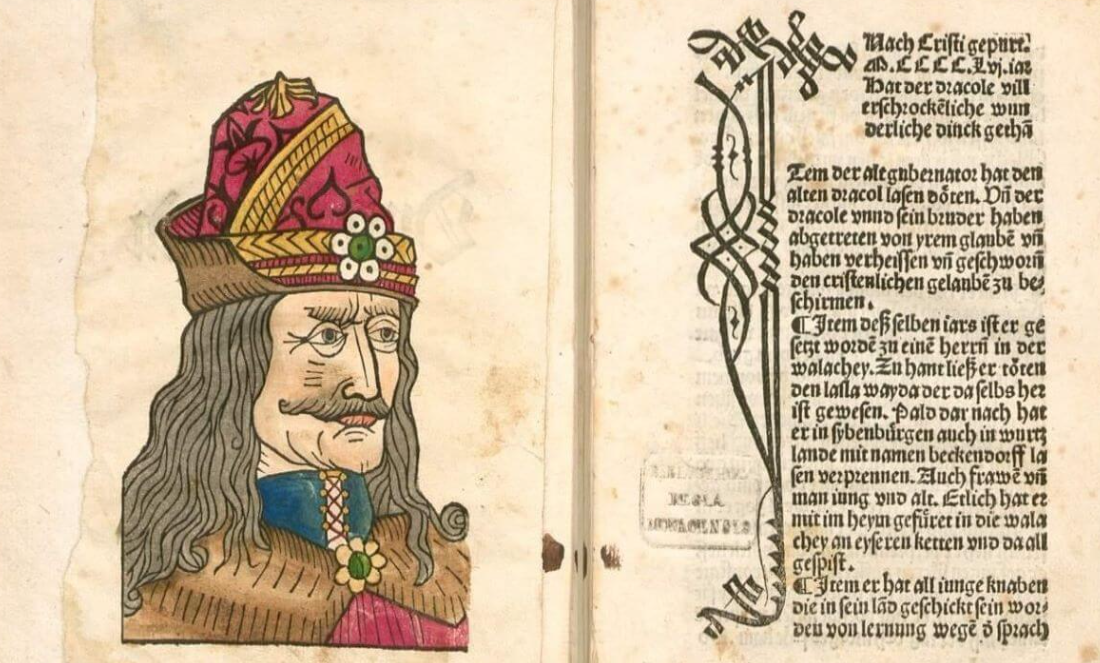 Nach Cristi gepurt.
M.CCCC.Lvj.iar
Hat der dracole vill
erschrockẽliche wun
derliche dinck gethã
Item der alt gubernator hat den
alten dracol lasen dôten. Vñ der
dracole vnnd sein bruder haben
abgetreten von yrem glaubẽ vñ
haben verheissen vñ geschworñ
den cristenlichen gelaubẽ zu be⸗
schirmen.
¶ Item deß selben iars ist er ge
setzt wordẽ zu einẽ herrñ in der
walachey. Zu hant ließ er tôten
den lasla wayda der da selbs her
ist gewesen. Pald dar nach hat
er in sybenbürgen auch in wurtz
lande mit namen beckendorff la
sen verprennen. Auch frawẽ vñ
man iung vnd alt. Etlich hat er
mit im heym gefüret in die wala
chey an eyseren ketten vnd da all
gespist.
¶ Item er hat all iunge knaben
die in sein lãd geschickt sein wor⸗
den von lernung wegẽ ð sprach
REGIA
MONACENSIS